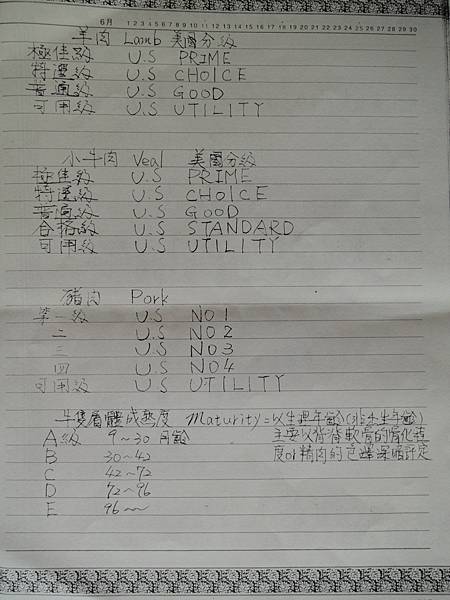 6月 1 2 3 4 5 6 7 8 9 10 11 12 13 14 15 16 17 18 19 20 21 22 23 24 25 26 27 28 29 30
羊肉 Lamb 美國分級
極佳級 U.S PRIME
特選級 U.S CHOICE
普通級 U.S GOOD
可用級 U.S UTILITY
小牛肉 Veal 美國分級
極佳級 U.S PRIME
特選級 U.S CHOICE
普通級 U.S GOOD
合格級 U.S STANDARD
可用級 U.S UTILITY
豬肉 Pork
第一級 U.S NO 1
二 U.S NO 2
三 U.S NO 3
四 U.S NO 4
可用級 U.S UTILITY
牛隻屠體成熟度 Maturity=以生理年齡(非出生年齡)
A級 9~30 月齡 主要以脊椎軟骨的骨化程
B 30~42 度or精肉的色澤深暗評定
C 42~72
D 72~96
E 96~~